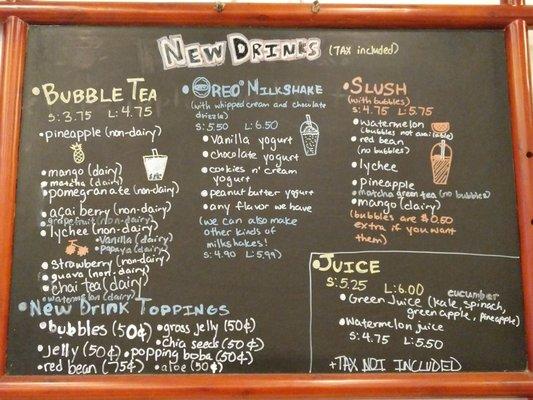 New Drinks (TAX included)
• Bubble Tea
S: 3.75 L: 4.75
• pineapple (non-dairy)
• mango (dairy)
• matcha (dairy)
• pomegranate (non-dairy)
• açai berry (non-dairy)
• grapefruit (non-dairy)
• lychee (non-dairy)
• Vanilla (dairy)
• Papaya (dairy)
• strawberry (non-dairy)
• guava (non-dairy)
• chai tea (dairy)
• watermelon (dairy)
• Oreo Milkshake
(with whipped cream and chocolate
drizzle)
S: 5.50 L: 6.50
• Vanilla yogurt
• chocolate yogurt
• cookies n' cream
yogurt
• peanut butter yogurt
• any flavor we have
(we can also make
other kinds of
milkshakes!
S: 4.90 L: 5.99)
• Slush
(with bubbles)
S: 4.75 L: 5.75
• watermelon
(bubbles not available)
• red bean
(no bubbles)
• lychee
• pineapple
• matcha green tea (no bubbles)
• mango (dairy)
(bubbles are $0.50
extra if you want
them)
• New Drink Toppings
• bubbles (50¢) • grass jelly (50¢)
• chia seeds (50¢)
• jelly (50¢) • popping boba (50¢)
• red bean (75¢) • aloe (50¢)
• Juice
S: 5.25 L: 6.00
cucumber
• Green Juice (kale, spinach,
green apple, pineapple)
• Watermelon juice
S: 4.75 L: 5.50
+TAX NOT INCLUDED